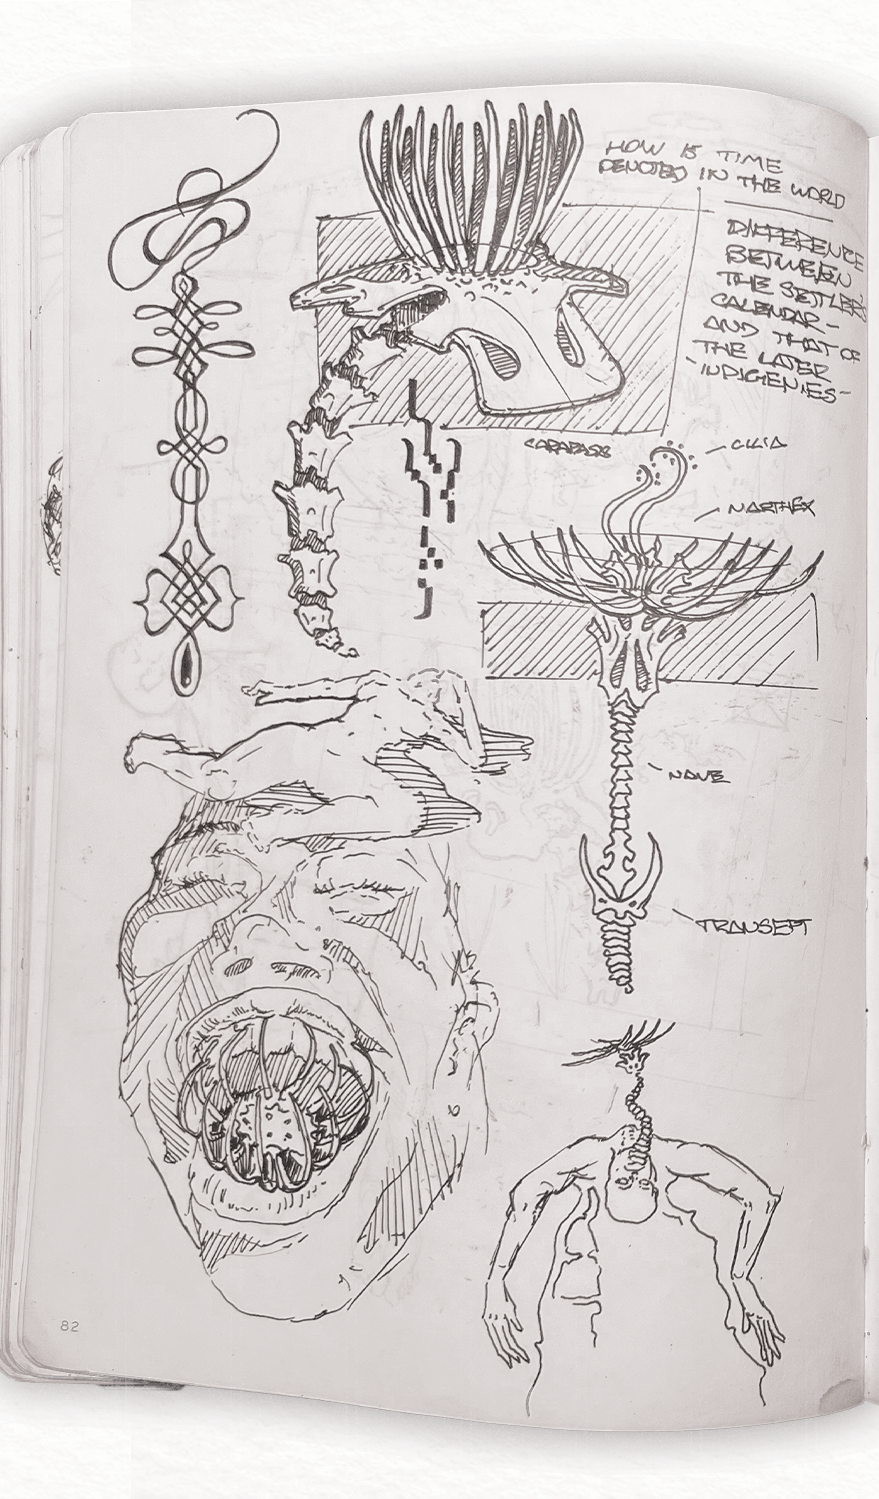 HOW IS TIME
DENOTED IN THE WORLD
DIFFERENCE
BETWEEN
THE SETTLERS
CALENDAR-
AND THAT OF
THE LATER
INDIGENIES-
CARAPASS
CILIA
NARTHEX
NAVE
TRANSEPT
82